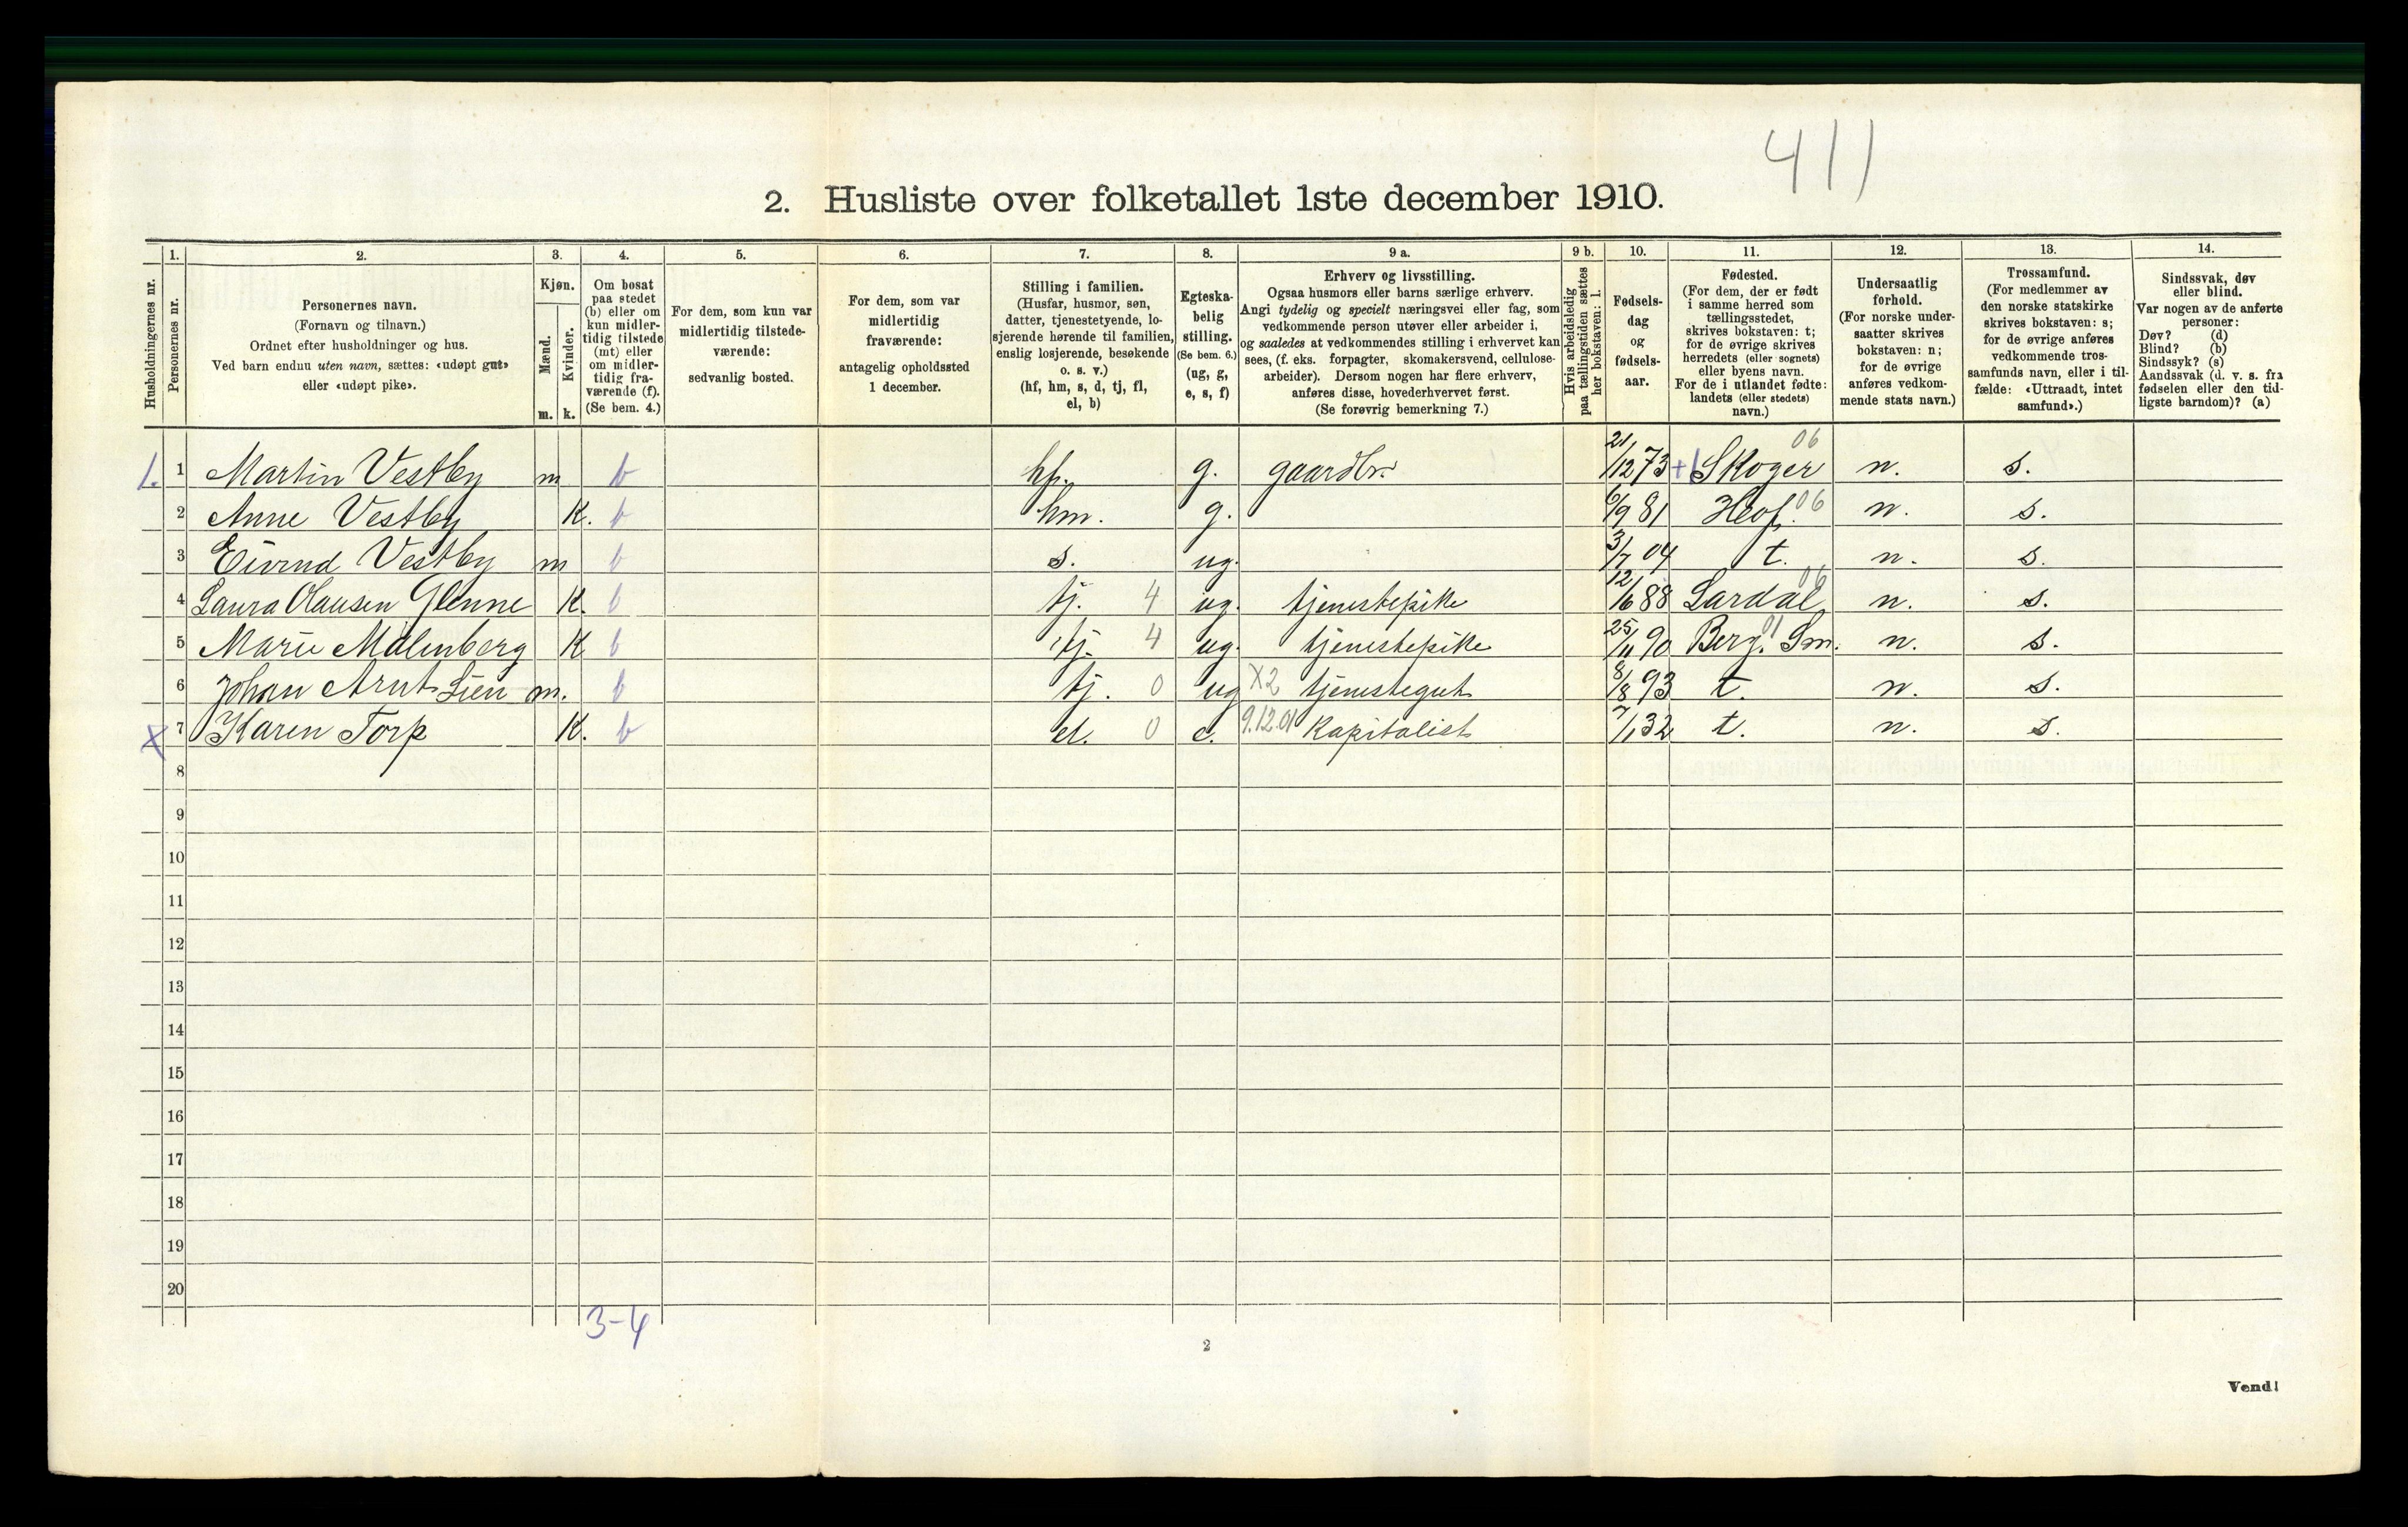 411
2. Husliste over folketallet 1ste december 1910.
Husholdningernes nr.
1. Personernes nr.
2. Personernes navn.
(Fornavn og tilnavn.)
Ordnet efter husholdninger og hus.
Ved barn endnu uten navn, sættes: «udøpt gut»
eller «udøpt pike».
3. Kjøn.
Mænd. m.
Kvinder. k.
4. Om bosat
paa stedet
(b) eller om
kun midler-
tidig tilstede
(mt) eller
om midler-
tidig fra-
værende (f).
(Se bem. 4.)
5. For dem, som kun var
midlertidig tilstede-
værende:
sedvanlig bosted.
6. For dem, som var
midlertidig
fraværende:
antagelig opholdssted
1 december.
7. Stilling i familien.
(Husfar, husmor, søn,
datter, tjenestetyende, lo-
sjerende hørende til familien,
enslig losjerende, besøkende
o. s. v.)
(hf, hm, s, d, tj, fl,
el, b)
8. Egteska-
belig
stilling.
(Se bem. 6.)
(ug, g,
e, s, f)
9 a. Erhverv og livsstilling.
Ogsaa husmors eller barns særlige erhverv.
Angi tydelig og specielt næringsvei eller fag, som
vedkommende person utøver eller arbeider i,
og saaledes at vedkommendes stilling i erhvervet kan
sees, (f. eks. forpagter, skomakersvend, cellulose-
arbeider). Dersom nogen har flere erhverv,
anføres disse, hovederhvervet først.
(Se forøvrig bemerkning 7.)
9 b. Hvis arbeidsledig
paa tællingstiden sættes
her bokstaven: l.
10. Fødsels-
dag
og
fødsels-
aar.
11. Fødested.
(For dem, der er født
i samme herred som
tællingsstedet,
skrives bokstaven: t;
for de øvrige skrives
herredets (eller sognets)
eller byens navn.
For de i utlandet fødte:
landets (eller stedets)
navn.)
12. Undersaatlig
forhold.
(For norske under-
saatter skrives
bokstaven: n;
for de øvrige
anføres vedkom-
mende stats navn.)
13. Trossamfund.
(For medlemmer av
den norske statskirke
skrives bokstaven: s;
for de øvrige anføres
vedkommende tros-
samfunds navn, eller i til-
fælde: «Uttraadt, intet
samfund».)
14. Sindssvak, døv
eller blind.
Var nogen av de anførte
personer:
Døv? (d)
Blind? (b)
Sindssyk? (s)
Aandssvak (d. v. s. fra
fødselen eller den tid-
ligste barndom)? (a)
1. 1 Martin Vestby m b hf. g. gaardbr. 21/12 73 + Skoger 06 n. s.
2 Anne Vestby K. b hm. g. 6/9 81 Hof. 06 n. s.
3 Eivind Vestby m b s. ug. 3/7 04 t. n. s.
4 Laura Clausen Glenne K. b tj. 4 ug. tjenestepike 12/6 88 Lardal 06 n. s.
5 Marie Malenberg K b tj. 4 ug. tjenestepike 25/11 90 Berg. Sm. 01 n. s.
6 Johan Arnt Lien m. b tj. 0 ug X2 tjenestegut 8/8 93 t. n. s.
X 7 Karen Torp K. b el. 0 e. 9.12.01 Kapitalist 7/1 32 t. n. s.
8
9
10
11
12
13
14
15
16
17
18
19
20
3-4
2
Vend!